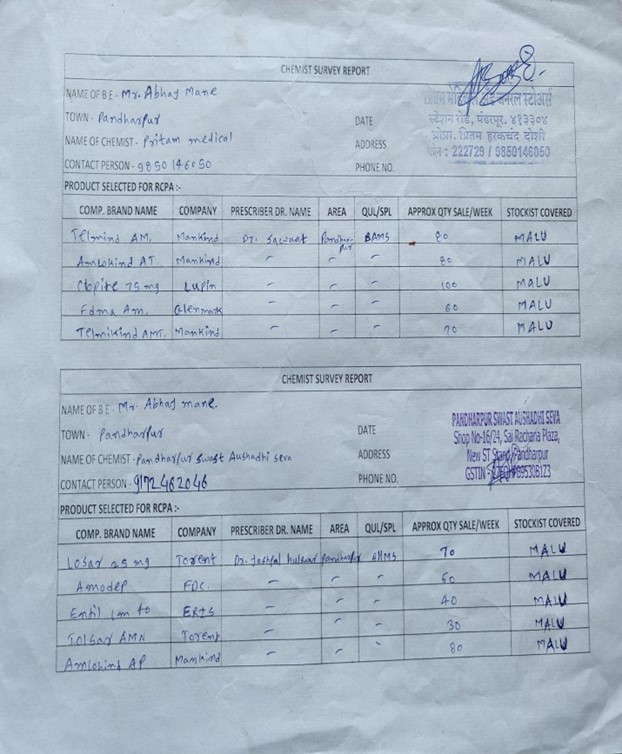 CHEMIST SURVEY REPORT
NAME OF B E - Mr. Abhay Mane
TOWN - Pandharpur
DATE
NAME OF CHEMIST - Pritam medical
ADDRESS
CONTACT PERSON - 9850146050
PHONE NO.
जनरल स्टोअर्स
स्टेशन रोड, पंढरपूर. ४१३३०४
प्रोप्रा. प्रितम हरकचंद दोशी
फोन : 222729 / 9850146050
PRODUCT SELECTED FOR RCPA :-
COMP. BRAND NAME COMPANY PRESCRIBER DR. NAME AREA QUL/SPL APPROX QTY SALE/WEEK STOCKIST COVERED
Telmind AM. Mankind Dr. Sawant Pandharpur BAMS 80 MALU
Amlokind AT Mankind - - - 80 MALU
Clopite 75 mg Lupin - - - 100 MALU
Edma Am. Glenmark - - - 60 MALU
Telmikind AMT. Mankind - - - 70 MALU
CHEMIST SURVEY REPORT
NAME OF B E - Mr. Abhay mane.
TOWN - Pandharpur
DATE
NAME OF CHEMIST - Pandharpur Swast Aushadhi seva
ADDRESS
CONTACT PERSON - 9172462046
PHONE NO.
PANDHARPUR SWAST AUSHADHI SEVA
Shop No-16/24, Sai Racharia Plaza,
New ST Stand Pandharpur
GSTIN
PRODUCT SELECTED FOR RCPA :-
COMP. BRAND NAME COMPANY PRESCRIBER DR. NAME AREA QUL/SPL APPROX QTY SALE/WEEK STOCKIST COVERED
Losar 25 mg Torent Dr. Pandharpur BHMS 70 MALU
Amodep FDC. - - - 60 MALU
ERIS - - - 40 MALU
Tolsar AMN Torent - - - 30 MALU
Amlokind AP Mankind - - 80 MALU